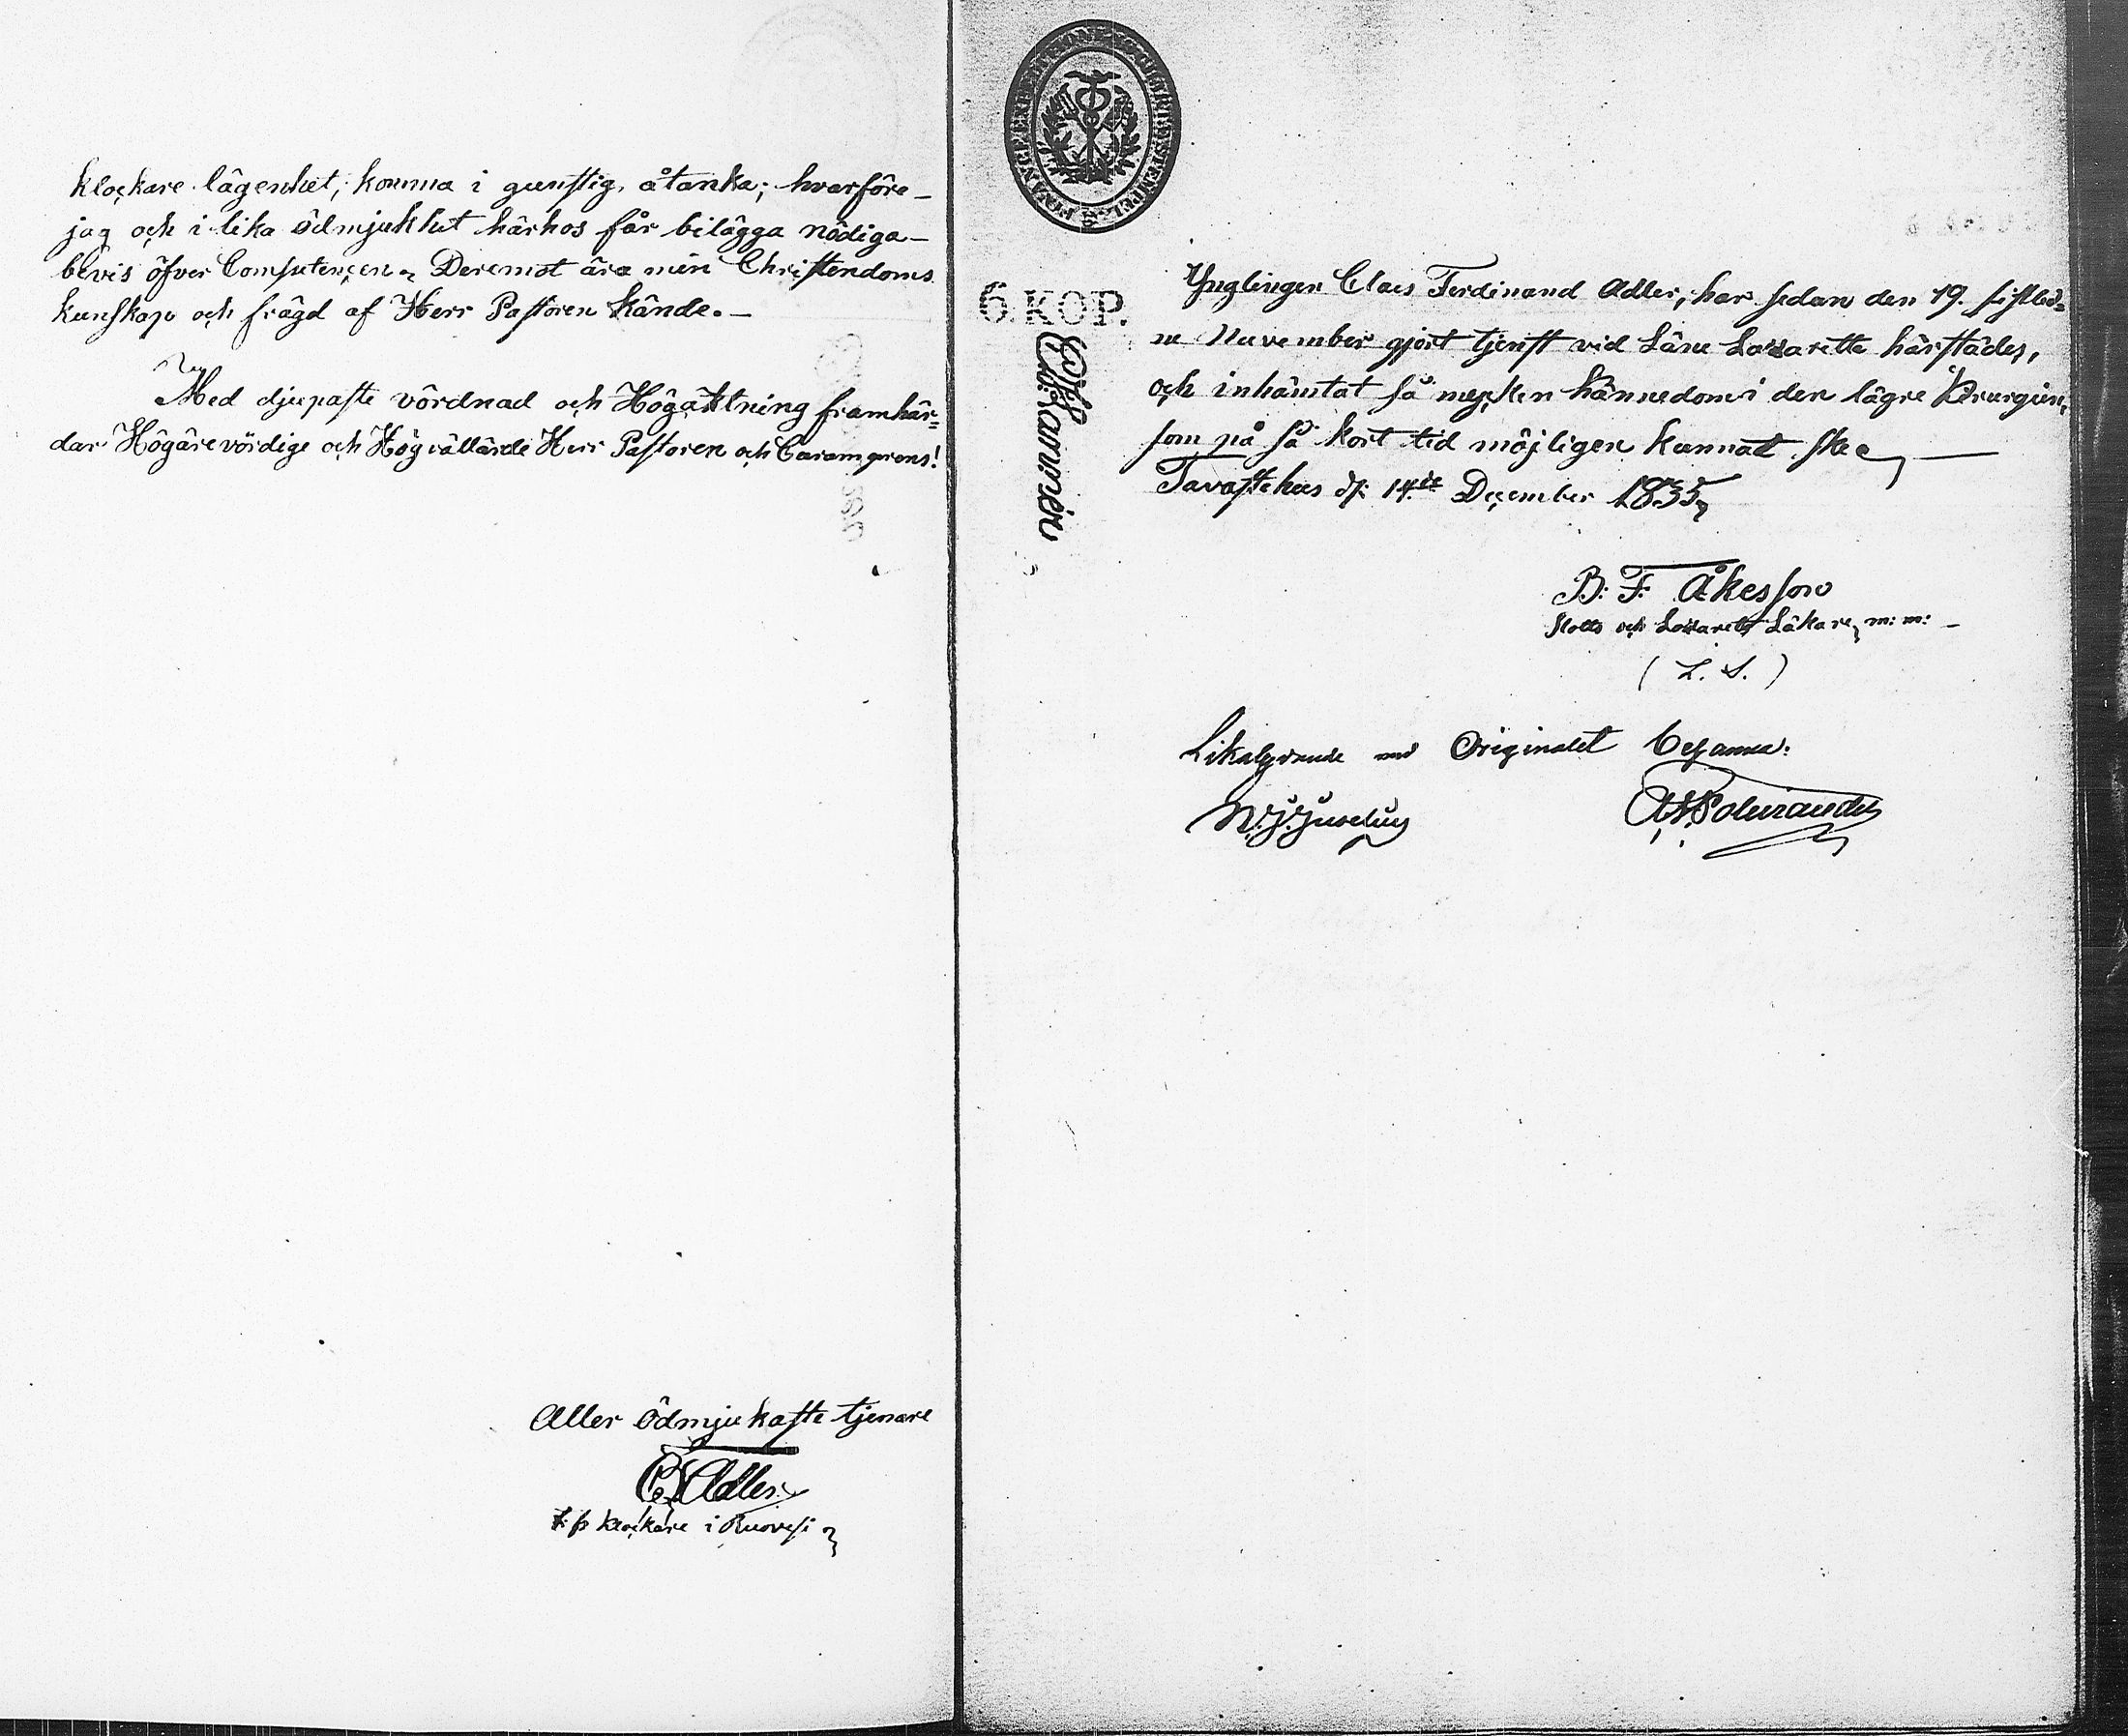 klockare lägenhet, komma i gunstig åtanka; hvarföre
jag och i lika ödmjukhet härhos får bilägga nödiga
bevis öfver Competencen. Deremot äro min Christendoms
kunskap och frägd af Herr Pastoren kände.
Med djupaste vördnad och Högaktning framhär=
dar Högärevördige och Högvällärde Herr Pastoren och
Aller ödmjukaste tjenare
Adler
klockare i Ruovesi
6. KOP.
Ynglingen Claes Ferdinand Adler, har sedan den 19. sistled=
ne November gjort tjenst vid Läne Lazarette härstädes,
och inhämtat så mycken kännedom i den lägre Kirurgien,
som på så kort tid möjligen kunnat ske
Tavastehus d: 14de December 1835
B: F: Åkesson
Slotts och Lazaretts Läkare, m: m:
( L. S. )
Likalydande med Originalet